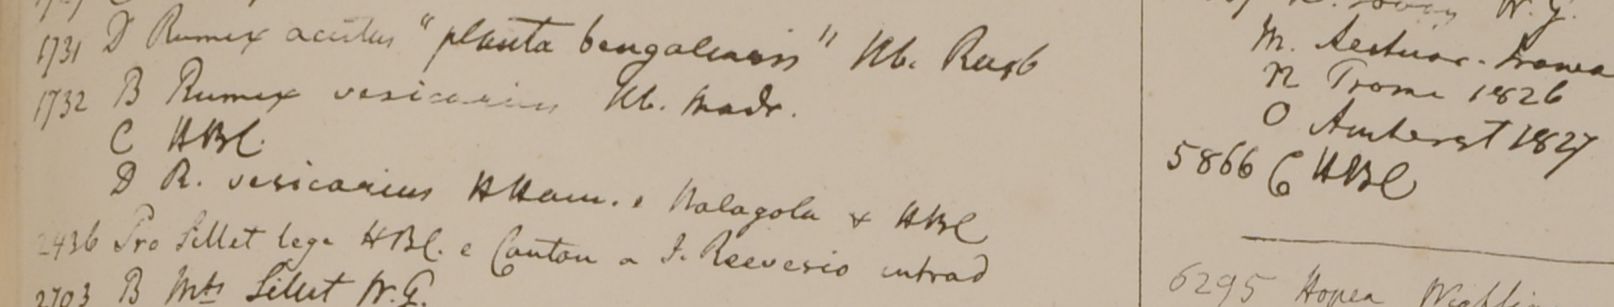 1731 D Rumex acutus "planta bengalensis" Hb. Roxb
1732 B Rumex vesicarius Hb. Madr.
C HBC.
D R. vesicarius HHam. e Nalagola & HBC
2436 Pro Sillet lege HBC. e Canton a J. Reevesio introd
2703 B Mts Silhet W.G.
W. G.
M.
N Prome 1826
O Amherst 1827
5866 C HBC
6295 Hopea